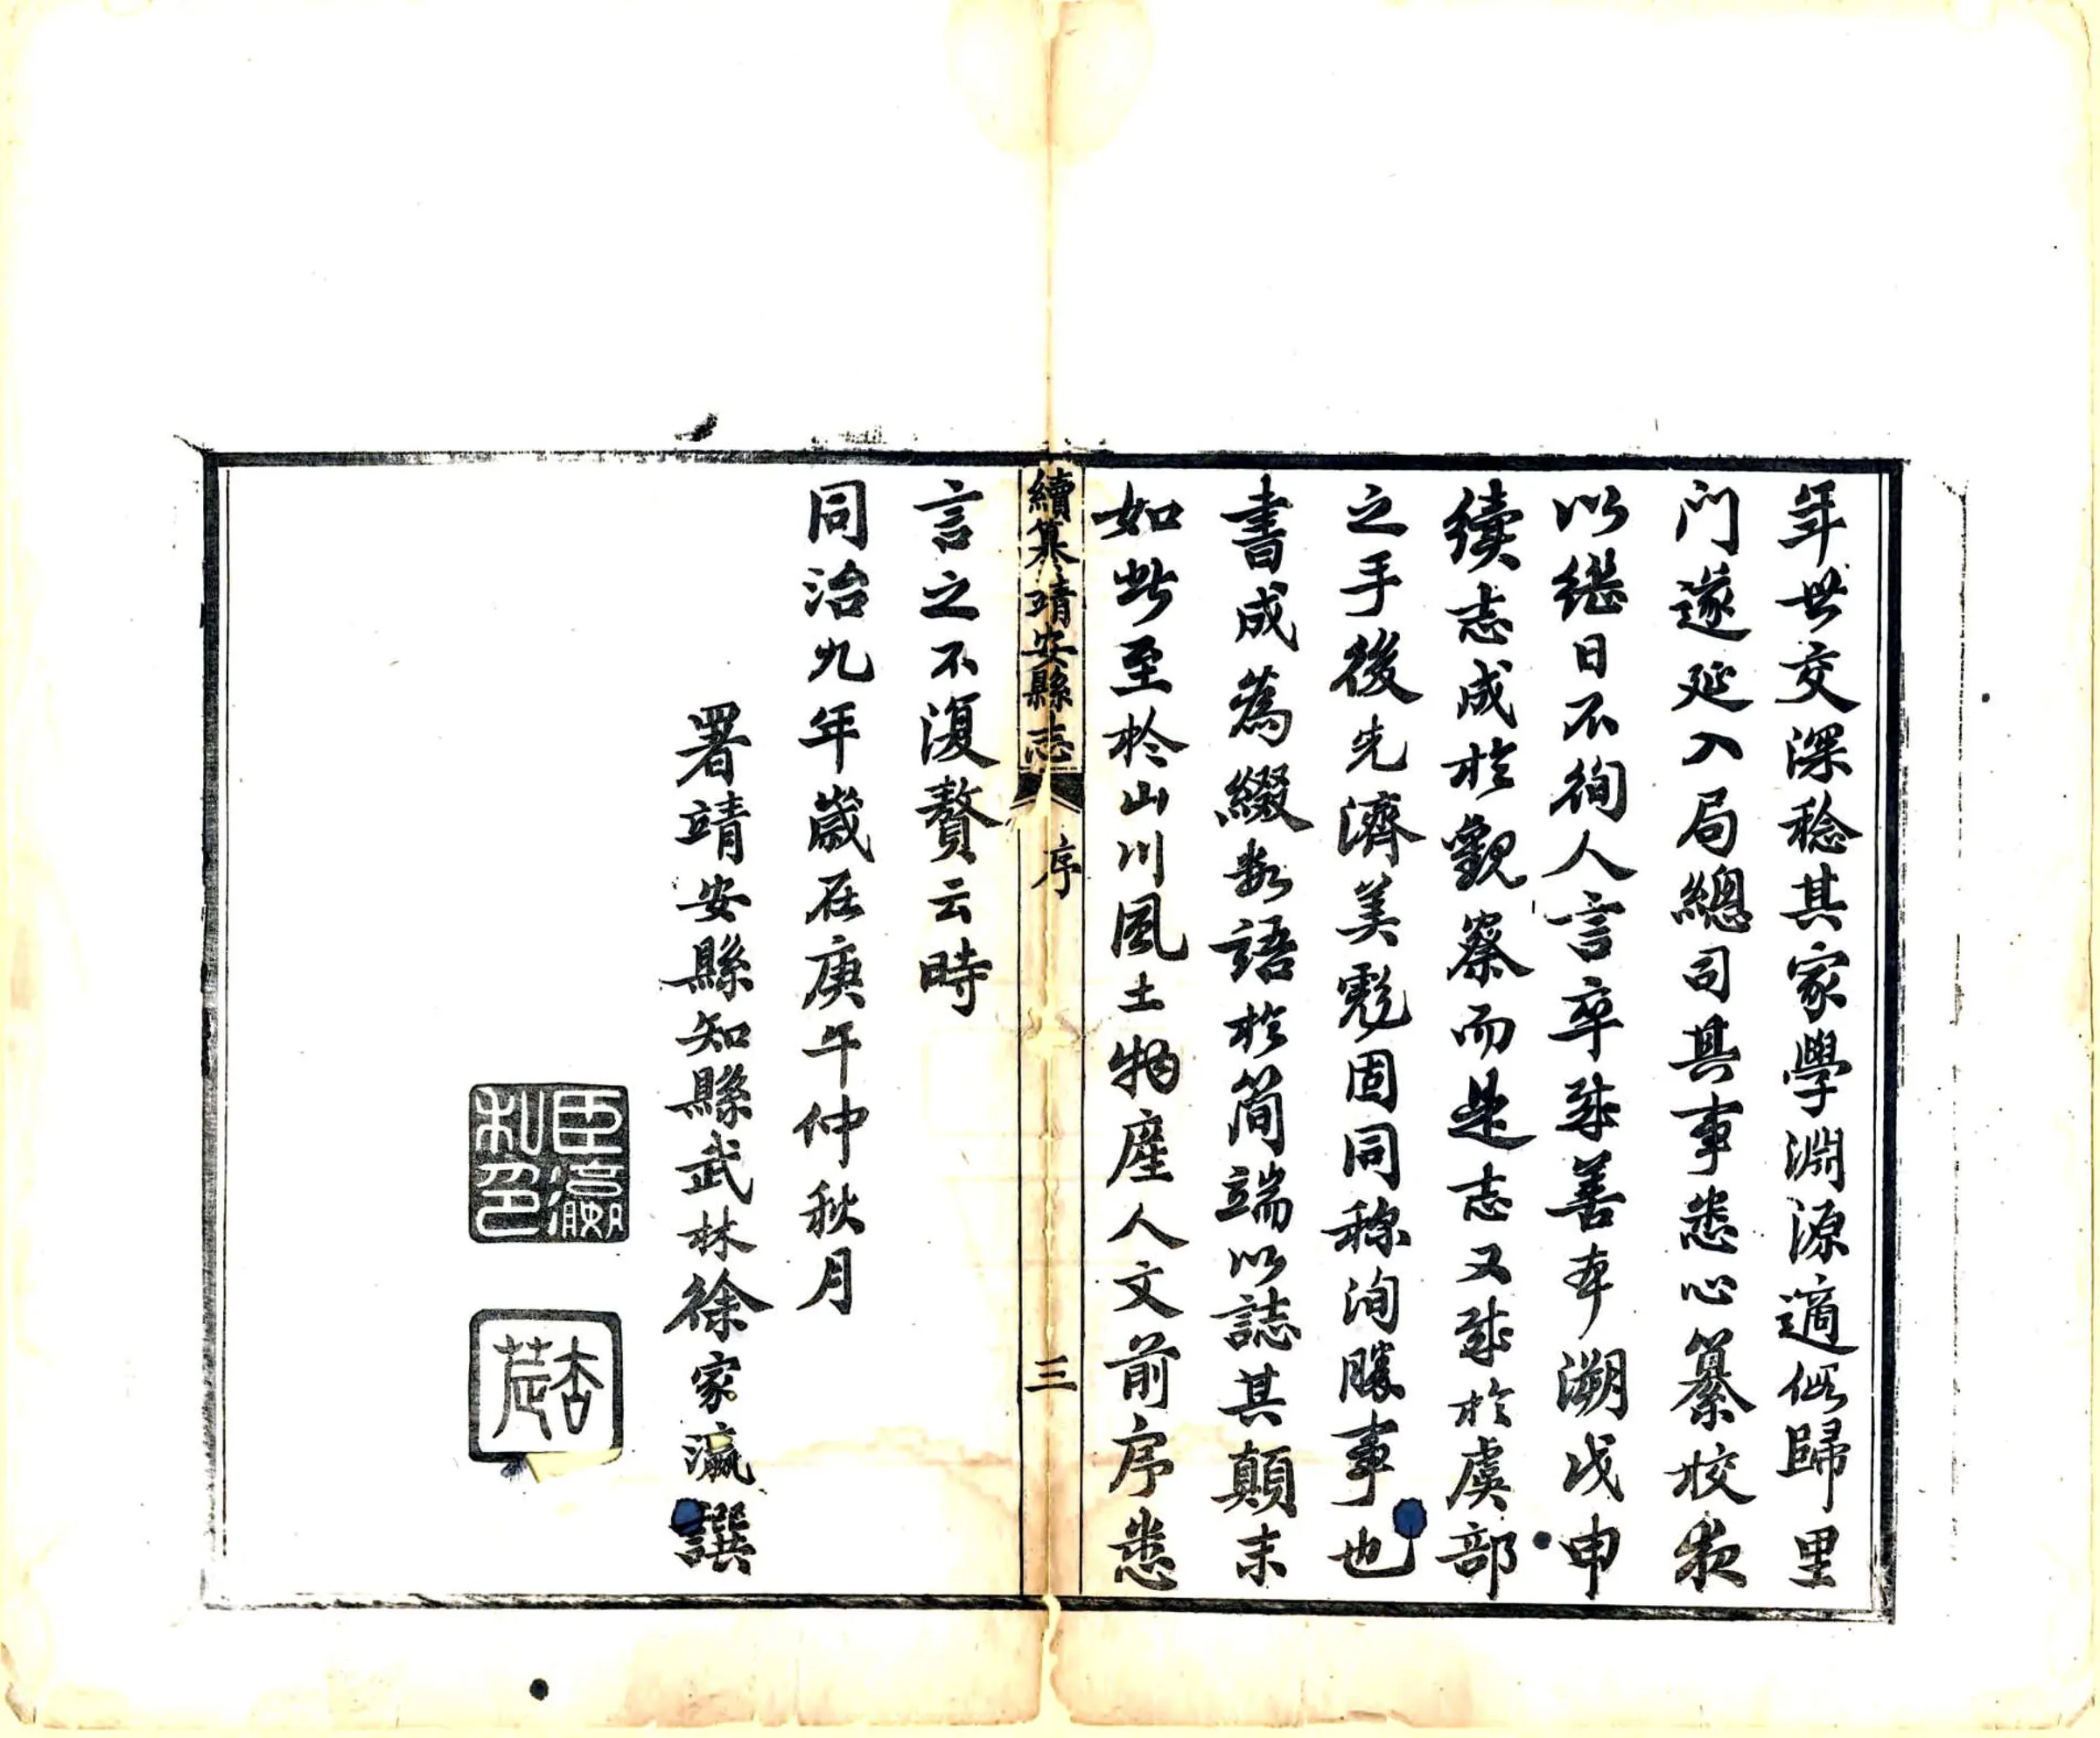 年世交深稔其家學淵源適假歸里
门遂延入局總司其事悉心纂校夜
以继日不徇人言卒成善本溯戊申
续志成於觀察而是志又成於虞部
之手後先濟美覥固同称洵勝事也
書成為綴数語於简端以誌其顛末
如此至於山川風土物產人文前序悉
續纂靖安縣志
序
三
言之不復贅云時
同治九年歲在庚午仲秋月
署靖安縣知縣武林徐家瀛譔
臣瀛私印
杏莊